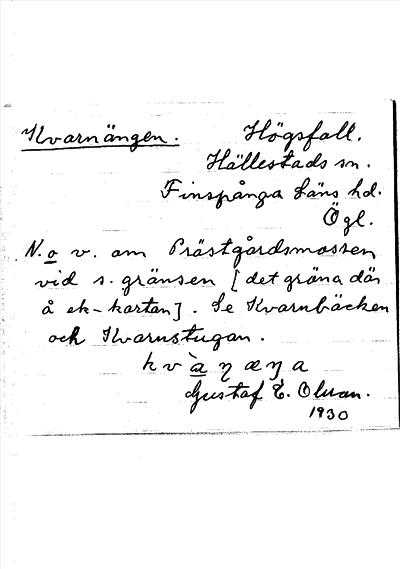 Kvarnängen. Högsfall.
Hällestads sn.
Finspånga läns hd.
Ögl.
N. o v. om Prästgårdsmossen
vid s. gränsen [det gröna där
å ek-kartan]. Se Kvarnbäcken
och Kvarnstugan.
kv̀aŋæŋa
Gustaf E. Olsson.
1930